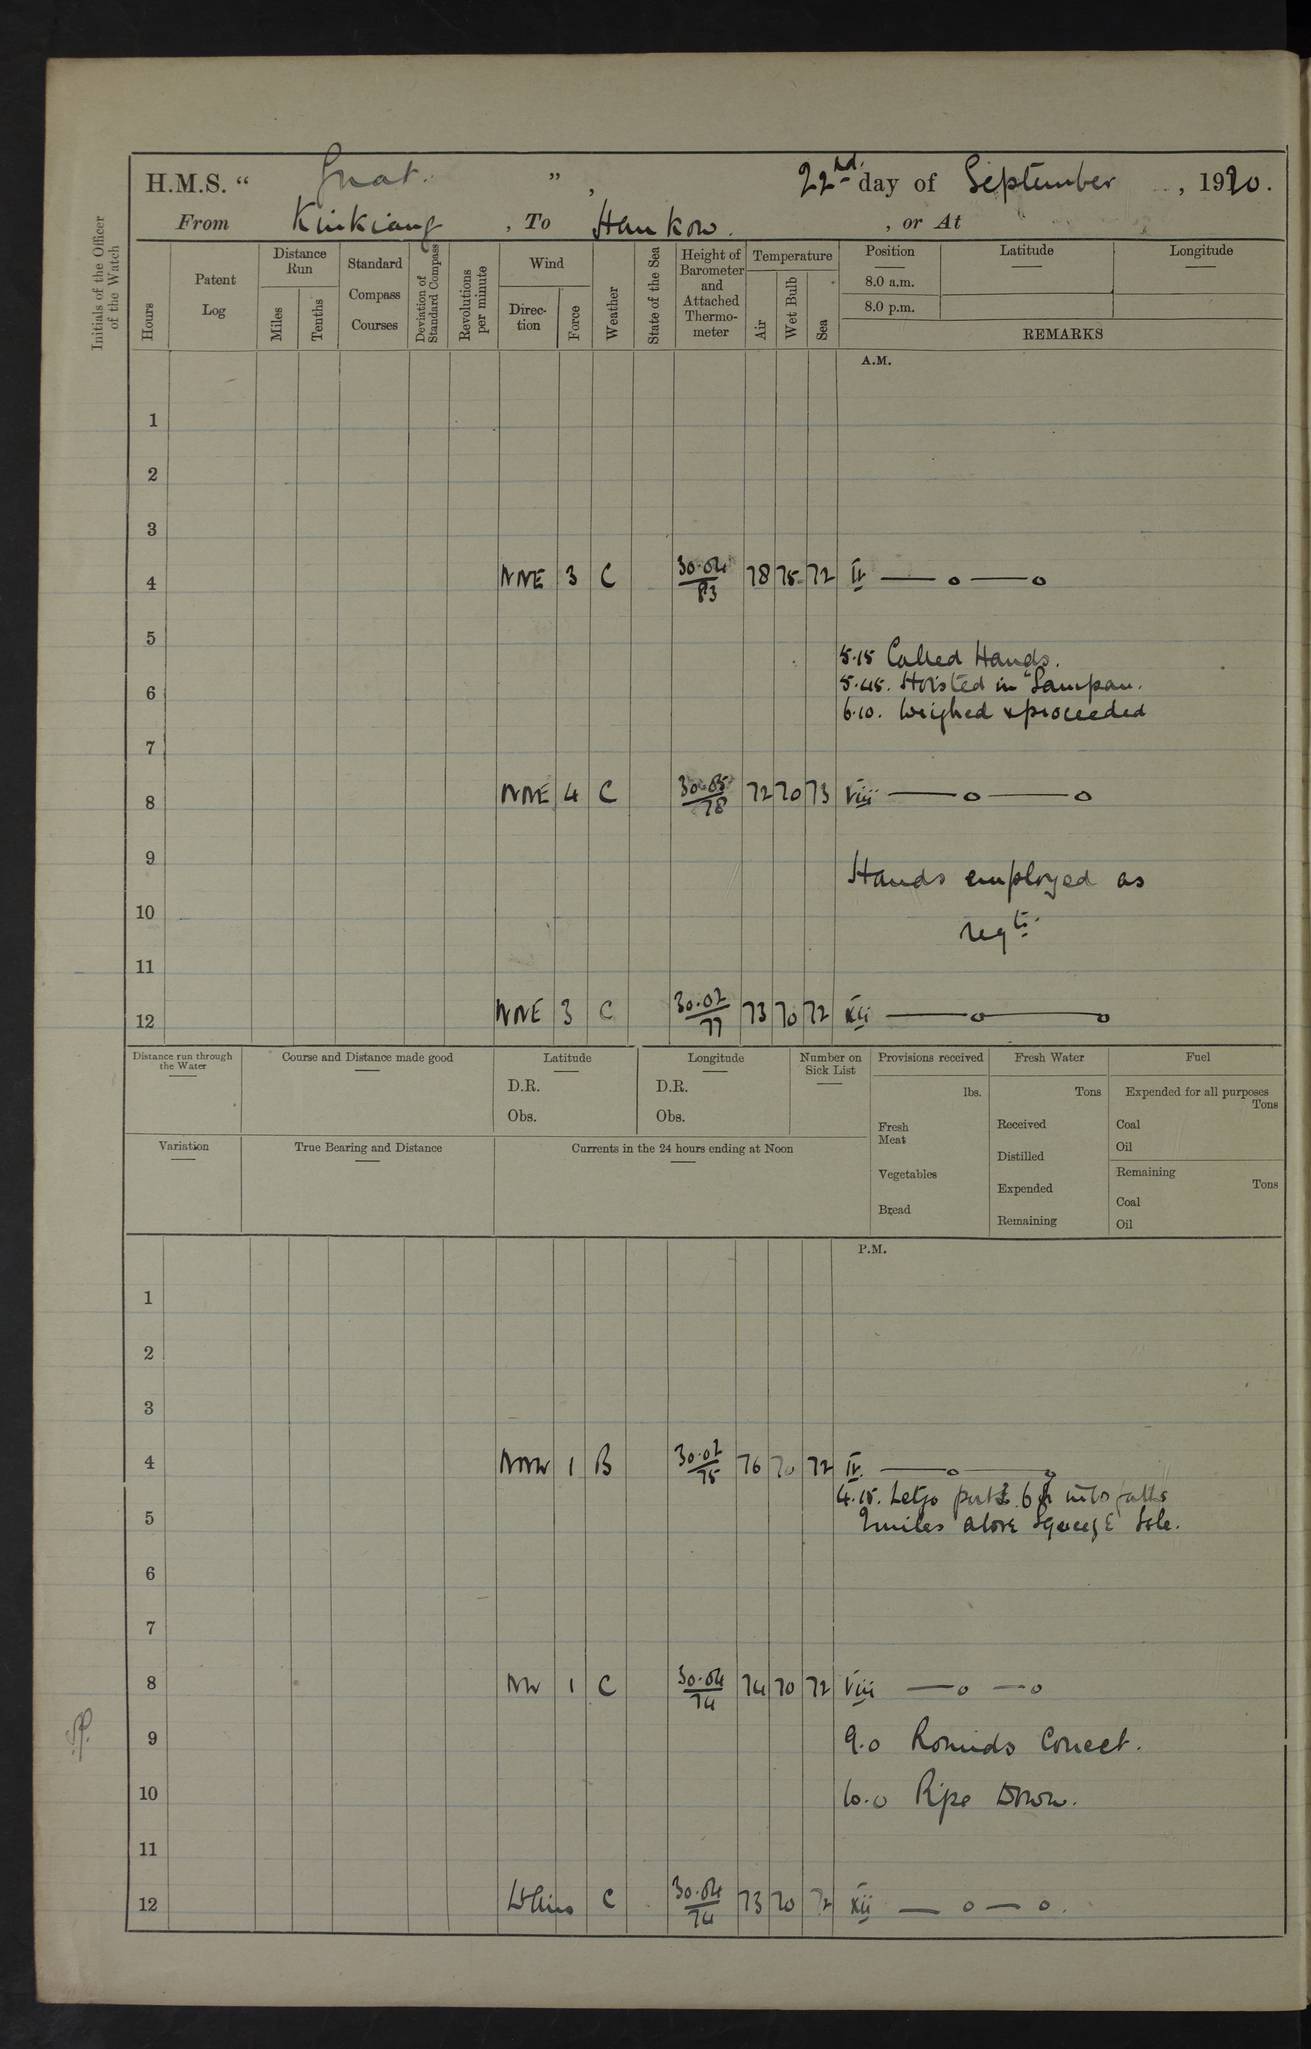 H.M.S. “ Gnat. ” , 22nd. day of September , 1920.
From Kiukiang , To Hankow. , or At
Initials of the Officer of the Watch
Hours
Patent Log
Distance Run
Miles
Tenths
Standard Compass Courses
Deviation of Standard Compass
Revolutions per minute
Wind
Direc-tion
Force
Weather
State of the Sea
Height of Barometer and Attached Thermo-meter
Temperature
Air
Wet Bulb
Sea
Position
8.0 a.m.
8.0 p.m.
Latitude
Longitude
REMARKS
A.M.
1
2
3
4 NNE 3 C 30.04/83 78 75 72 IV —o—o
5
5.15 Called Hands.
5.45. Hoisted in Sampan.
6
6.10. Weighed & proceeded
7
8 NNE 4 C 30.05/78 72 70 73 Viii —o—o
9
Hands employed as
10
reqte.
11
12 NNE 3 C 30.02/77 73 70 72 Xii —o—o
Distance run through the Water
Course and Distance made good
Latitude
D.R.
Obs.
Longitude
D.R.
Obs.
Number on Sick List
Provisions received
lbs.
Fresh Meat
Vegetables
Bread
Fresh Water
Tons
Received
Distilled
Expended
Remaining
Fuel
Expended for all purposes
Tons
Coal
Oil
Remaining
Tons
Coal
Oil
Variation
True Bearing and Distance
Currents in the 24 hours ending at Noon
P.M.
1
2
3
4 NNW 1 B 30.02/75 76 70 72 IV. —o—o
4.15. Letgo port 6
5
2 miles above
6
7
8 NW 1 C 30.04/74 74 70 72 Viii —o—o
9 9.0 Rounds Correct.
10 10.0 Pipe Down.
11
12 C 30.04/74 73 70 72 Xii —o—o.